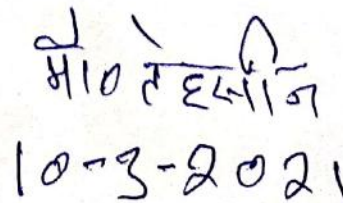 मो० तेहसीन
10-3-2021